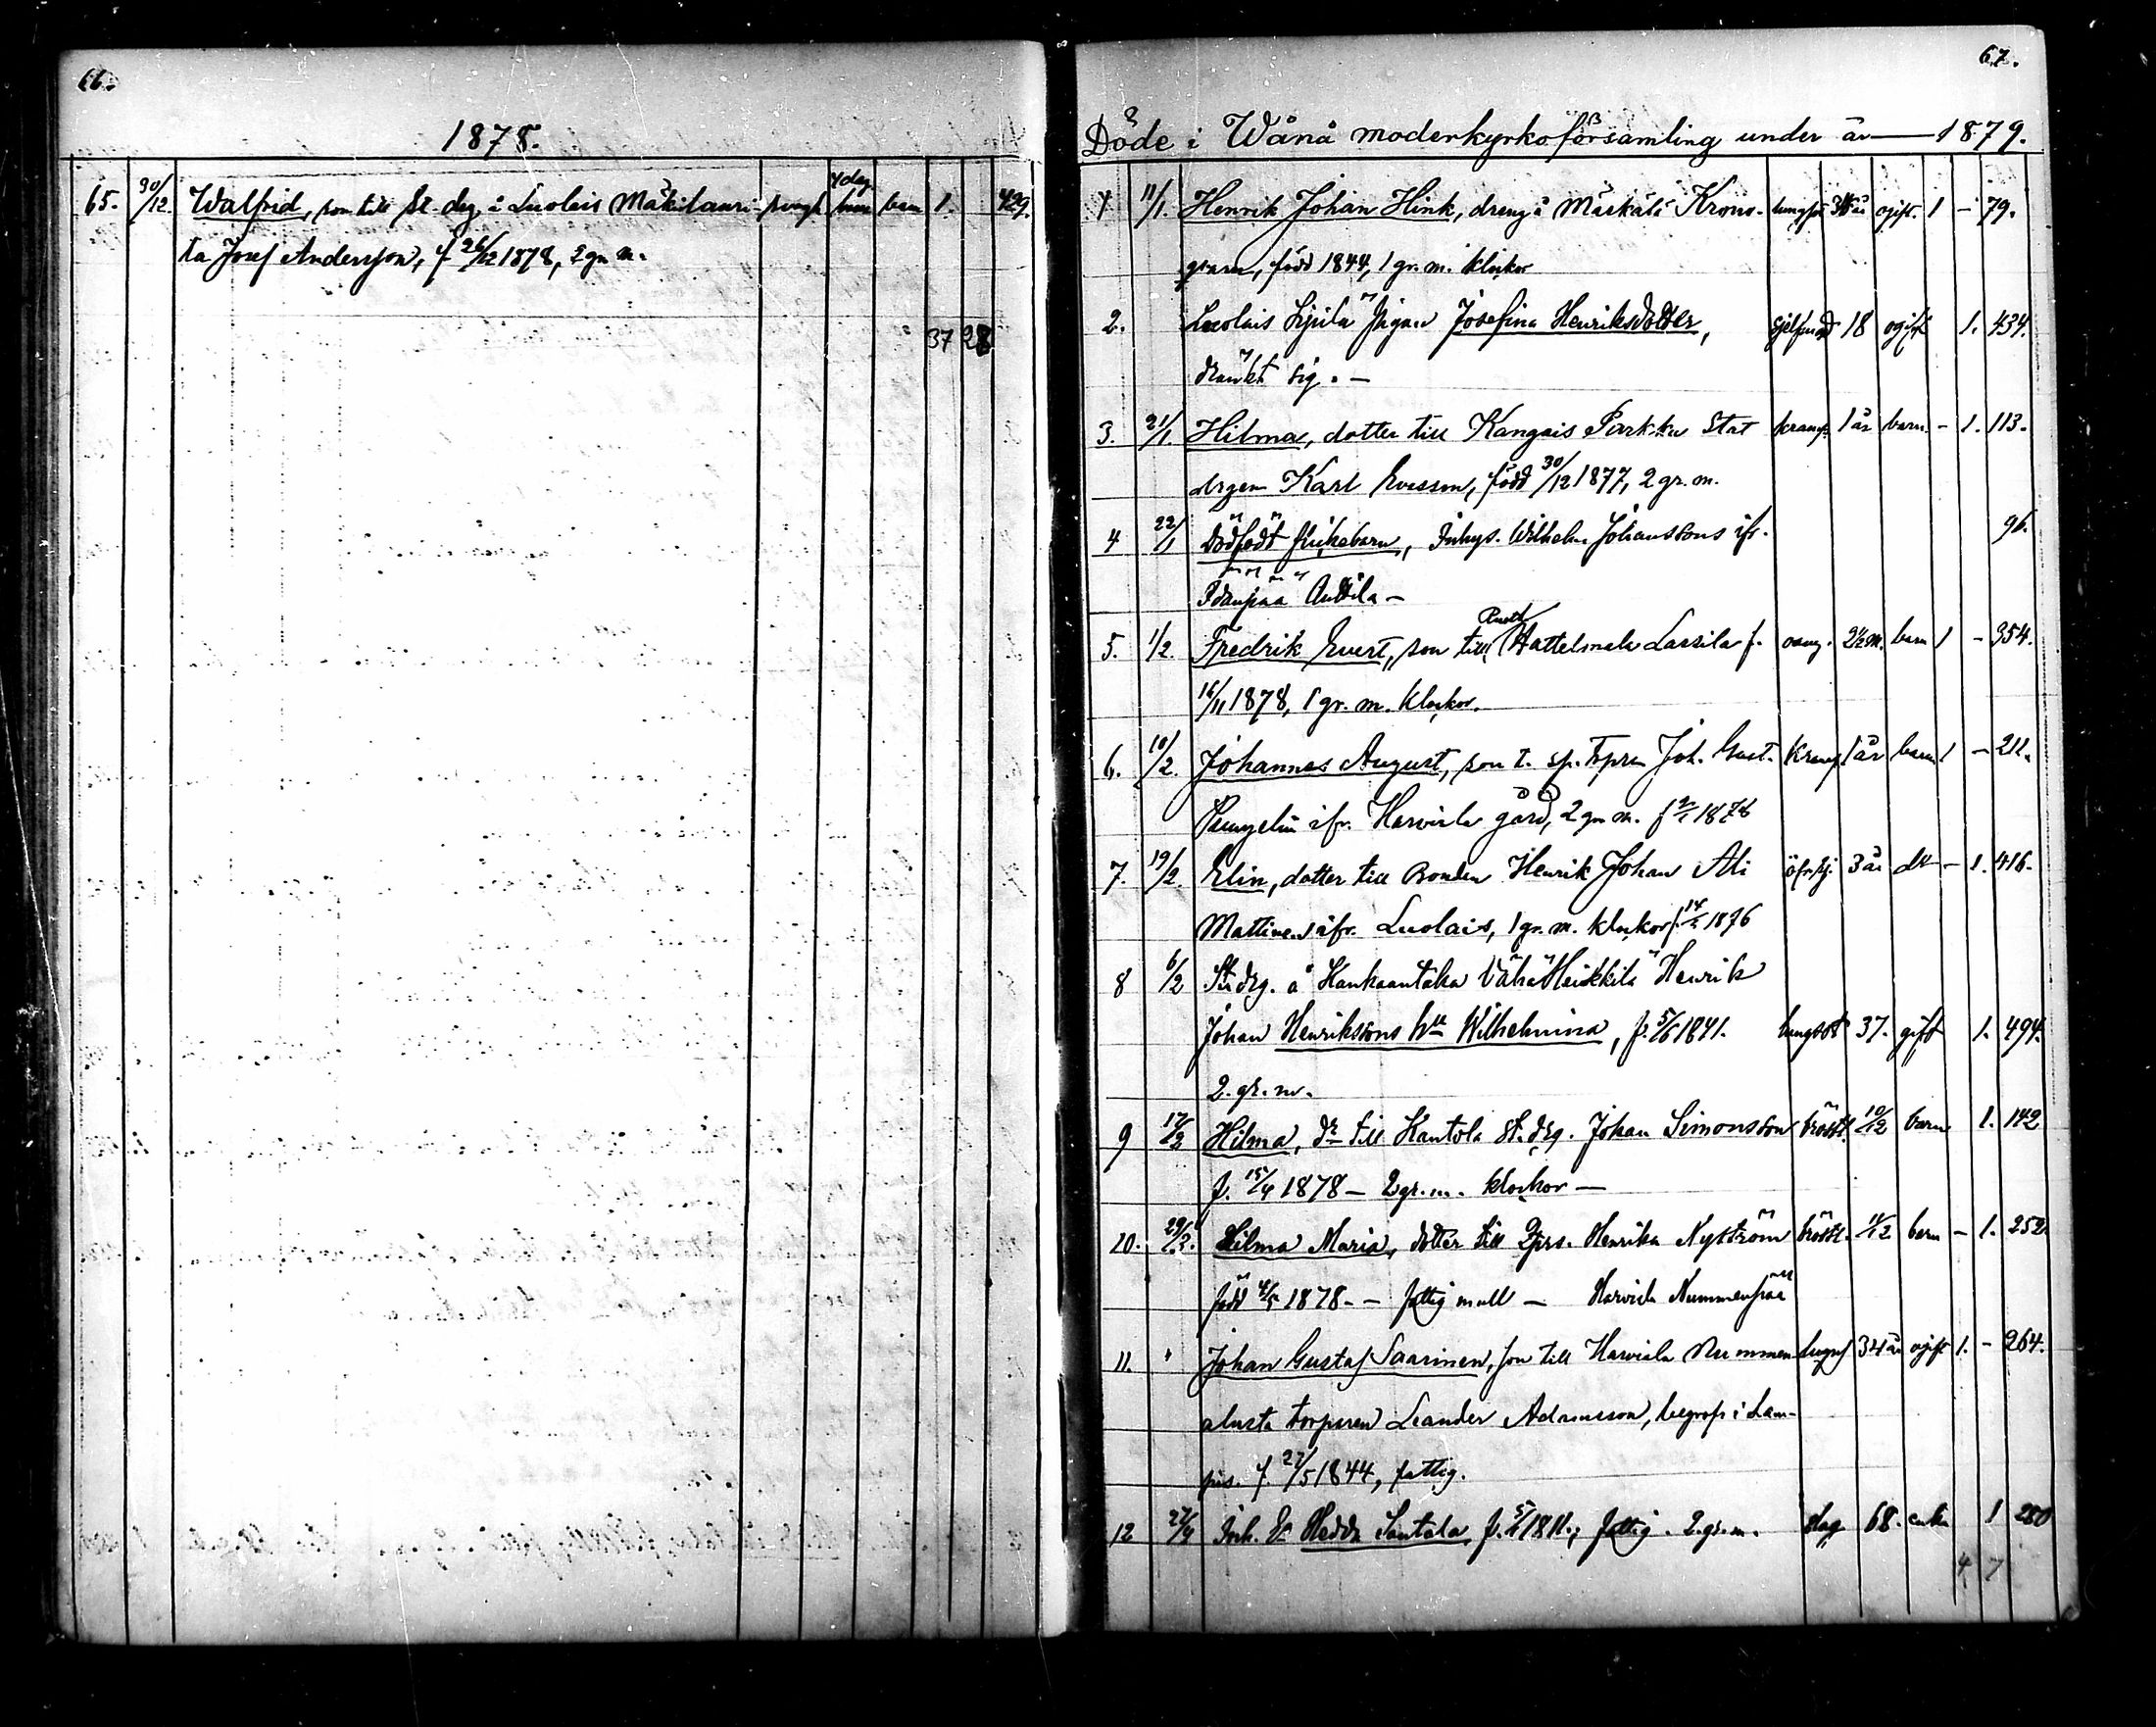 66.
1878.
65. 30/12. Walfrid, son till St. drg. å Luolais Mäkilauri- 4 dag. barn 1. 429.
ta Josef Andersson, f 26/12 1878, 2 gr. m.
37 28
67.
Döde i Wånå moderkyrkoförsamling under år — 1879.
1 11/1. Henrik Johan Hink, dreng å Mäskälä Krono- lungsot 34 år ogift. 1 - 79.
född 1844, 1 gr. m. klockor
2. Luolais Sipilä Pigan Josefina Henriksdotter, sjelfmord 18 ogift 1. 434.
dränkt sig. —
3. 21/1. Hilma, dotter till Kangais Parkku Stat 1 år barn - 1. 113.
drgen Karl Evesson, född 30/12 1877, 2 gr. m.
4 22/1 Dödfödt flickebarn, Inhys. Wilhelm Johanssons ifr. 96.
Idänpää Anttila —
5. 1/2. Fredrik Evert, son till Hattelmala Lassila f. 2½ m. barn 1 - 354.
16/11 1878, 1 gr. m. klockor.
6. 10/2. Johannes August, son t. sp. Torprn Joh. Gust. 1 år barn 1 - 211.
ifr. Harviala gård, 2 gr. m. f 1878
7. 19/2. Elin, dotter till Bonden Henrik Johan Ali 3 år do - 1. 416.
Mattinen ifr. Luolais, 1 gr. m. klockor f. 1876
8 6/2 St. drg. å Hankaantaka Vähä Heikkilä Henrik
Johan Henrikssons hu Wilhelmina, f. 5/6 1841. lungsot 37. gift 1. 494.
2. gr. m.
9 17/2 Hilma, dr till Kantola st. drg. Johan Simonsson 10/12 barn 1. 142
f. 15/4 1878 — 2 gr. m. klockor —
10. 29/3. Hilma Maria, dotter till Henrika Nyström 11/12 barn - 1. 252.
född 4/5 1878. — fattig mull — Harviala Nummenpää
11. " Johan Gustaf Saarinen, son till Harviala Nummen- 34 år ogift 1. - 264.
alusta torparen Leander Adamsson, begrafs i Lam-
pis. f. 27/5 1844, fattig.
12 22/4 Inh. E: Hedda Santala f. 5/1 1811.; fattig. 2. gr. m. slag 68. enka 1 280
4 7